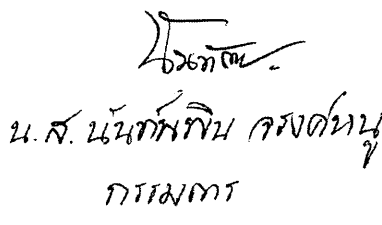 น.ส. นันท์นพิน จรงค์หนู
กรรมการ